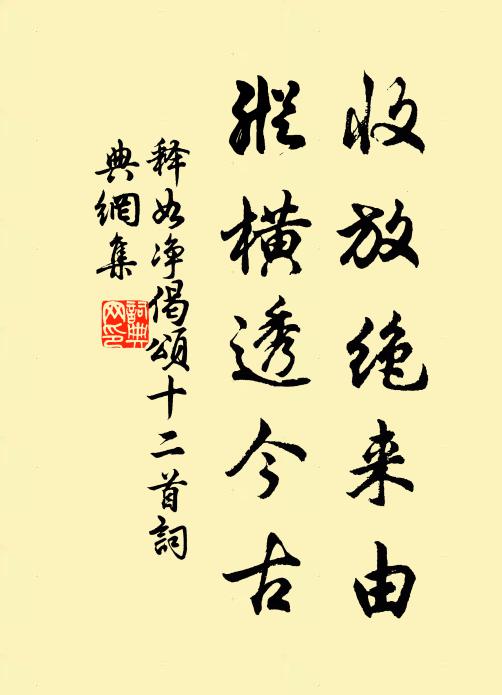 收放绝来由
縱横透今古
释如净偈頌十二首詞
典網集
詞典网印